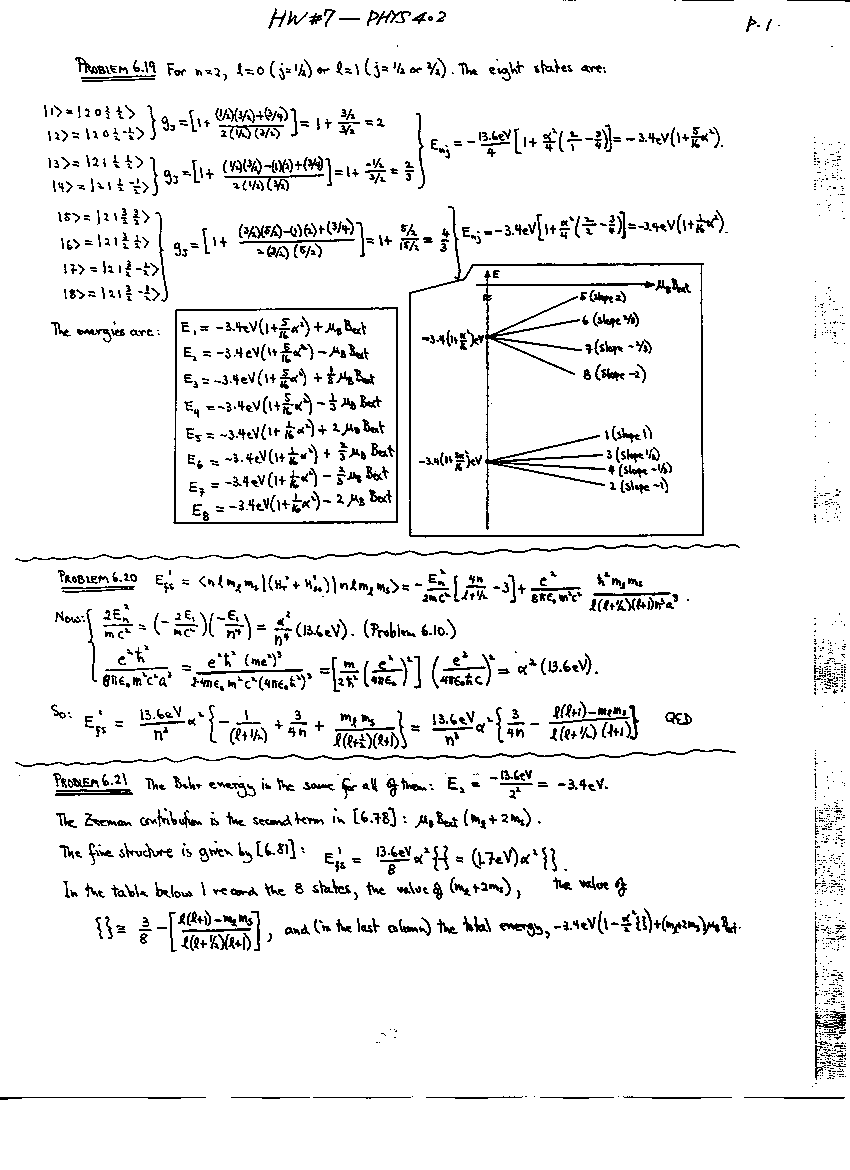 HW#7 — PHYS 402
P. 1
PROBLEM 6.19 For n=2, l=0 (j=1/2) or l=1 (j=1/2 or 3/2). The eight states are:
|1> = |2 0 1/2 1/2>
|2> = |2 0 1/2 -1/2>
} g_J = [1 + ((1/2)(3/2)+(3/4))/(2(1/2)(3/2))] = 1 + (3/2)/(3/2) = 2
|3> = |2 1 1/2 1/2>
|4> = |2 1 1/2 -1/2>
} g_J = [1 + ((1/2)(3/2)-(1)(2)+(3/4))/(2(1/2)(3/2))] = 1 + (-1/2)/(3/2) = 2/3
} E_nj = -13.6eV/4 [1 + α²/4 (2/1 - 3/4)] = -3.4eV(1 + 5/16 α²).
|5> = |2 1 3/2 3/2>
|6> = |2 1 3/2 1/2>
|7> = |2 1 3/2 -1/2>
|8> = |2 1 3/2 -3/2>
} g_J = [1 + ((3/2)(5/2)-(1)(2)+(3/4))/(2(3/2)(5/2))] = 1 + (5/2)/(15/2) = 4/3
} E_nj = -3.4eV[1 + α²/4 (2/2 - 3/4)] = -3.4eV(1 + 1/16 α²).
The energies are:
E₁ = -3.4eV(1 + 5/16 α²) + μ_B B_ext
E₂ = -3.4eV(1 + 5/16 α²) - μ_B B_ext
E₃ = -3.4eV(1 + 5/16 α²) + 1/3 μ_B B_ext
E₄ = -3.4eV(1 + 5/16 α²) - 1/3 μ_B B_ext
E₅ = -3.4eV(1 + 1/16 α²) + 2 μ_B B_ext
E₆ = -3.4eV(1 + 1/16 α²) + 2/3 μ_B B_ext
E₇ = -3.4eV(1 + 1/16 α²) - 2/3 μ_B B_ext
E₈ = -3.4eV(1 + 1/16 α²) - 2 μ_B B_ext
E
μ_B B_ext
5 (slope 2)
6 (slope 2/3)
-3.4(1+α²/16)eV
7 (slope -2/3)
8 (slope -2)
1 (slope 1)
3 (slope 1/3)
-3.4(1+5α²/16)eV
4 (slope -1/3)
2 (slope -1)
PROBLEM 6.20 E_fs' = <n l m_l m_s|(H_r' + H_so')|n l m_l m_s> = -E_n²/2mc² [4n/(l+1/2) - 3] + e²/(8πε₀m²c²) ħ² m_l m_s/(l(l+1/2)(l+1)n³a³).
Now: { 2E_n²/mc² = (-2E₁/mc²)(-E₁/n⁴) = α²/n⁴ (13.6eV). (Problem 6.10.)
e²ħ²/(8πε₀m²c²a³) = e²ħ²(me²)³/(2·4πε₀m²c²(4πε₀ħ²)³) = [m/2ħ² (e²/4πε₀)²](e²/4πε₀ħc)² = α²(13.6eV).
So: E_fs' = 13.6eV/n³ α² {-1/(l+1/2) + 3/4n + m_l m_s/(l(l+1/2)(l+1))} = 13.6eV/n³ α² {3/4n - (l(l+1)-m_l m_s)/(l(l+1/2)(l+1))} QED
PROBLEM 6.21 The Bohr energy is the same for all of them: E₂ = -13.6eV/2² = -3.4eV.
The Zeeman contribution is the second term in [6.78]: μ_B B_ext (m_l + 2m_s).
The fine structure is given by [6.81]: E_fs' = 13.6eV/8 α²{} = (1.7eV)α²{}.
In the table below I record the 8 states, the value of (m_l+2m_s), the value of
{} ≡ 3/8 - [(l(l+1)-m_l m_s)/(l(l+1/2)(l+1))], and (in the last column) the total energy, -3.4eV(1 - α²/2 {}) + (m_l+2m_s)μ_B B_ext.